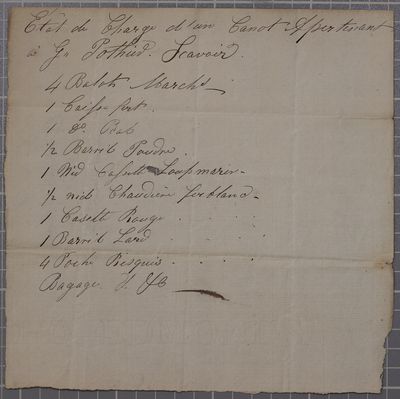 Etat de Charge d'un Canot Apertenant
à Gn Pothier. Scavoir.
4 Balots Marchs
1 Caisse fert.
1 do Bab
1/2 Barril Poudre.
1 Nid Casette Loupmarin
1/2 nid Chaudiere ferblanc
1 Casette Rouge
1 Barril Lard
4 Poche Bisquis
Bagage. &c